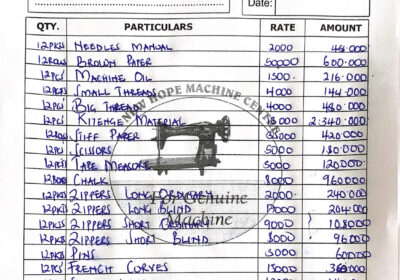 Date:
QTY. PARTICULARS RATE AMOUNT
12pkts NEEDLES MANUAL 2000 48.000
12Rows BROWN PAPER 50000 600.000
12pcs MACHINE OIL 1500 216.000
12pkts SMALL THREADS 4000 144.000
12pcs BIG THREAD 4000 480.000
KITENGE MATERIAL 2.340.000
STIFF PAPER 35000 420000
12pcs SCISSORS 5000 180.000
12pcs TAPE MEASURE 5000 120000
CHALK 8000 960000
12pkts ZIPPERS LONG ORDINARY 2000 240.000
12pkts ZIPPERS LONG BLIND 204.000
12pkts ZIPPERS SHORT ORDINARY 9000 108000
12pkts ZIPPERS SHORT BLIND 8000 96000
12pkts PINS 5000
12pcs FRENCH CURVES
NEW HOPE MACHINE CENTER
For Genuine
Machine